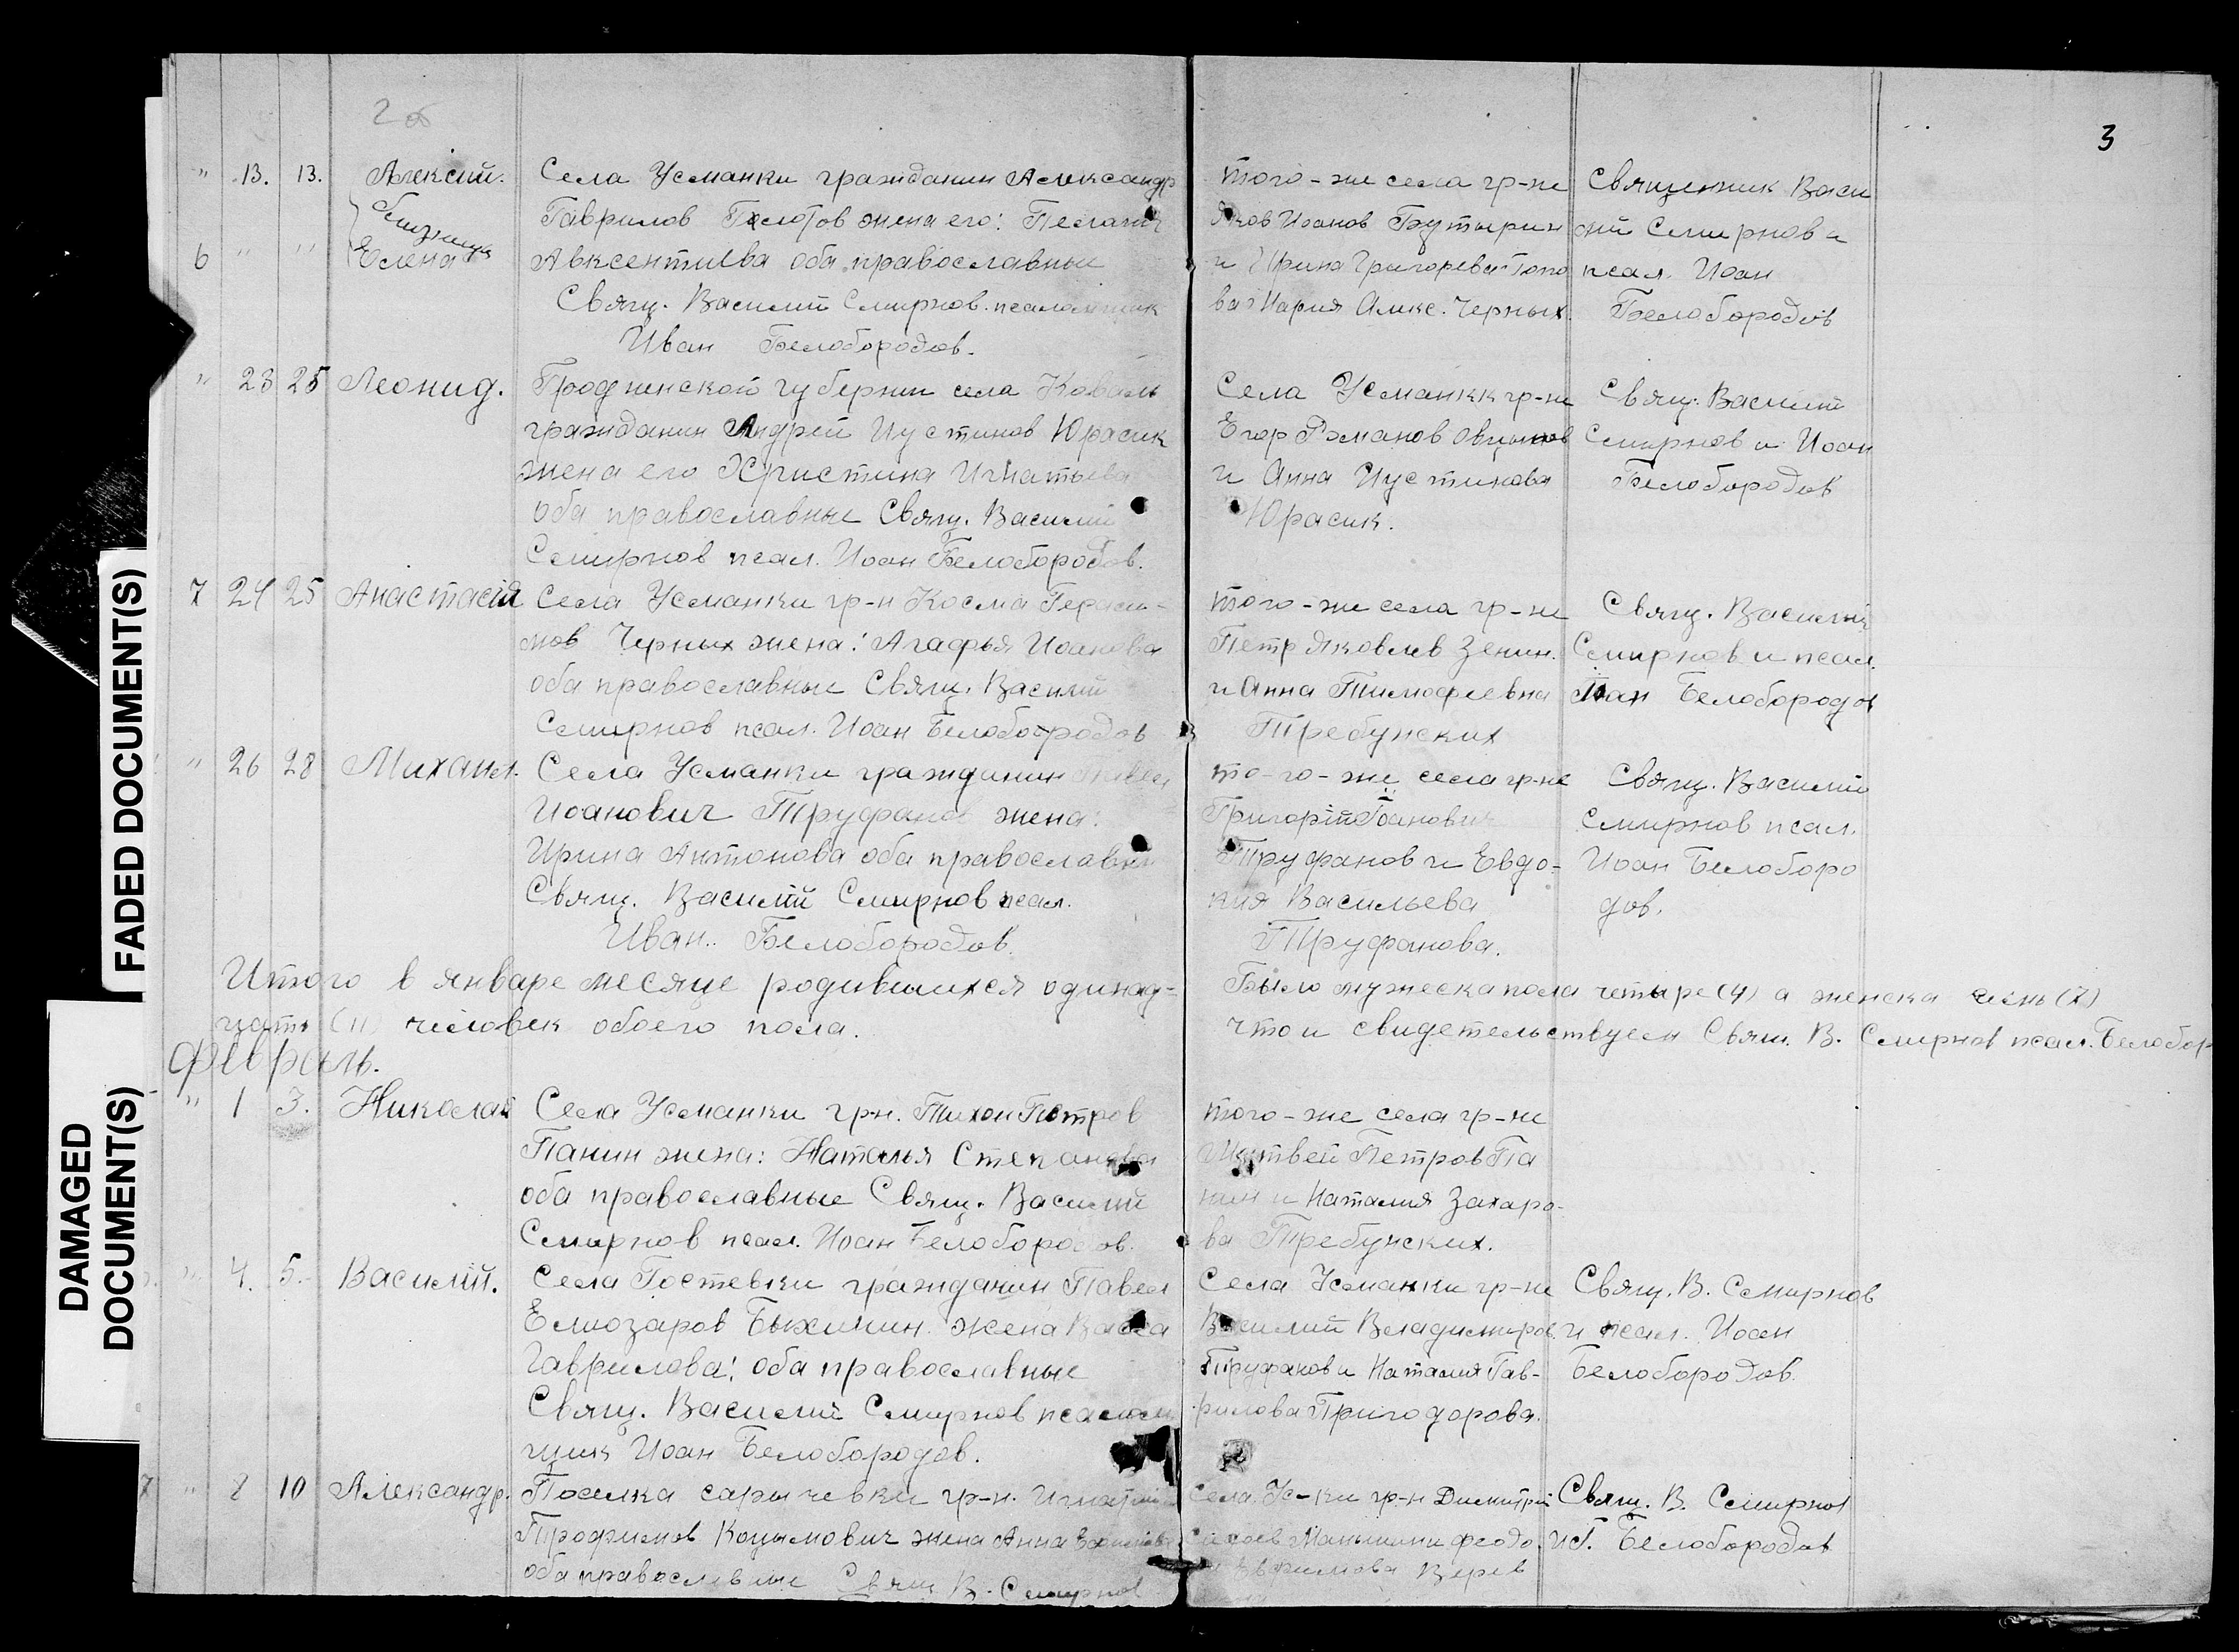 2об
3
" 13. 13. Алексий. Села Усманки гражданин Александр
близнецы Гаврилов жена его: Пелагия
6 " " Елена Авксентиева оба православные
Свящ. Василий Смирнов. псаломщик
Иван Белобородов.
того-же села гр-не
Яков Иоанов Бутырин
и Ирина Григорева Попо
ва Мария Алекс. Черных.
Священник Васи
лий Смирнов и
псал. Иоан
Белобородов
" 23 25 Леонид. Гродненской губернии села Коваль
гражданин Андрей Иустинов Юрасик
жена его Христина Игнатьева
оба православные Свящ. Василий
Смирнов псал. Иоан Белобородов.
Села Усманкк гр-не
Егор Романов
и Анна Иустинова
Юрасик.
Свящ. Василий
Смирнов и Иоан
Белобородов
7 24 25 Анастасия Села Усманки гр-н Косма Гераси-
мов Черных жена: Агафья Иоанова
оба православные Свящ. Василий
Смирнов псал. Иоан Белобородов
того-же села гр-не
Петр Яковлев Зенин.
и Анна Тимофеевна
Требунских
Свящ. Василий
Смирнов и псал.
Иоан Белобородов
" 26 28 Михаил. Села Усманки гражданин Павел
Иоанович Труфанов жена:
Ирина Антонова оба православные
Свящ. Василий Смирнов псал.
Иван. Белобородов.
то-го-же села гр-не
Григорий Иоанович
Труфанов и Евдо-
кия Васильева
Труфанова.
Свящ. Василий
Смирнов псал.
Иоан Белоборо
дов.
Итого в январе месяце родившихся одинад-
цать (11) человек обоего пола.
Было мужеска пола четыре (4) а женска семь (7)
что и свидетельствуем Свящ. В. Смирнов псал. Белобор
Февраль.
" 1 3. Николай Села Усманки грн. Тихон Петров
Панин жена: Наталья Степанова
оба православные Свящ. Василий
Смирнов псал. Иоан Белобородов.
того-же села гр-не
Матвей Петров Па
нин и Наталия Захаро-
ва Требунских.
" 4. 5. Василий. Села Гостевки гражданин Павел
Елиозаров Быхикин. жена Васса
Гаврилова: оба православные
Свящ. Василий Смирнов псалом
щик Иоан Белобородов.
Села Усманки гр-не
Василий Владимиров
Труфанов и Наталия Гав-
рилова Пригодорова.
Свящ. В. Смирнов
и псал. Иоан
Белобородов.
" 8 10 Александр. Поселка сарычевки гр-н. Игнатий
Трофимов Коцымович жена Анна
оба православные Свящ В. Смирнов
Села Ус-ки гр-н Димитрий
феодо
Верев
Свящ. В. Смирнов
и Г. Белобородов
FADED DOCUMENT(S)
DAMAGED
DOCUMENT(S)